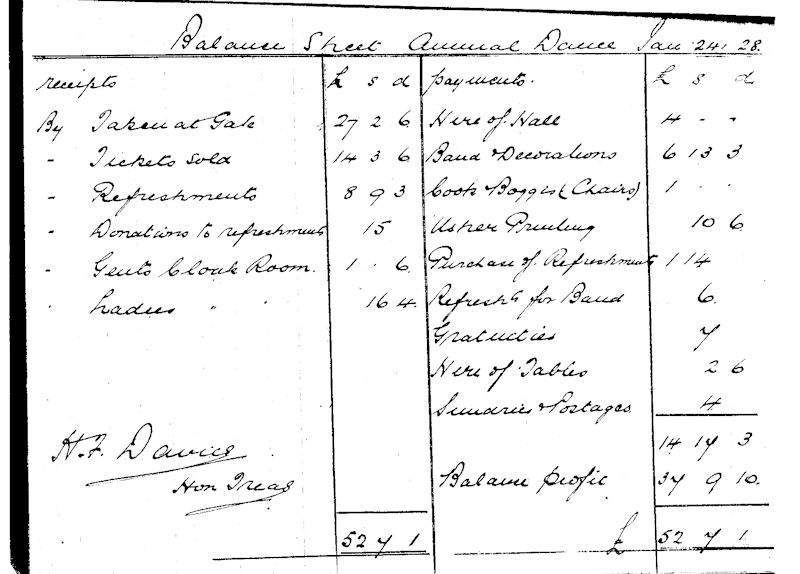 Balance Sheet Annual Dance Jan 24. 28.
receipts £ s d payments. £ s d
By Taken at Gate 27 2 6 Hire of Hall 4 - -
" Tickets sold 14 3 6 Band & Decorations 6 13 3
" Refreshments 8 9 3 Coote & Boggis (Chairs) 1 . .
" Donations to refreshments 15 Usher Printing 10 6
" Gents Cloak Room. 1 . 6 Purchase of Refreshments 1 14
" Ladies " " 16 4 Refresh​ts for Band 6
Gratuities 7
Hire of Tables 2 6
Sundries & Postages 4
14 17 3
H.F. Davies
Hon Treas
Balance profit 37 9 10
52 7 1 £ 52 7 1